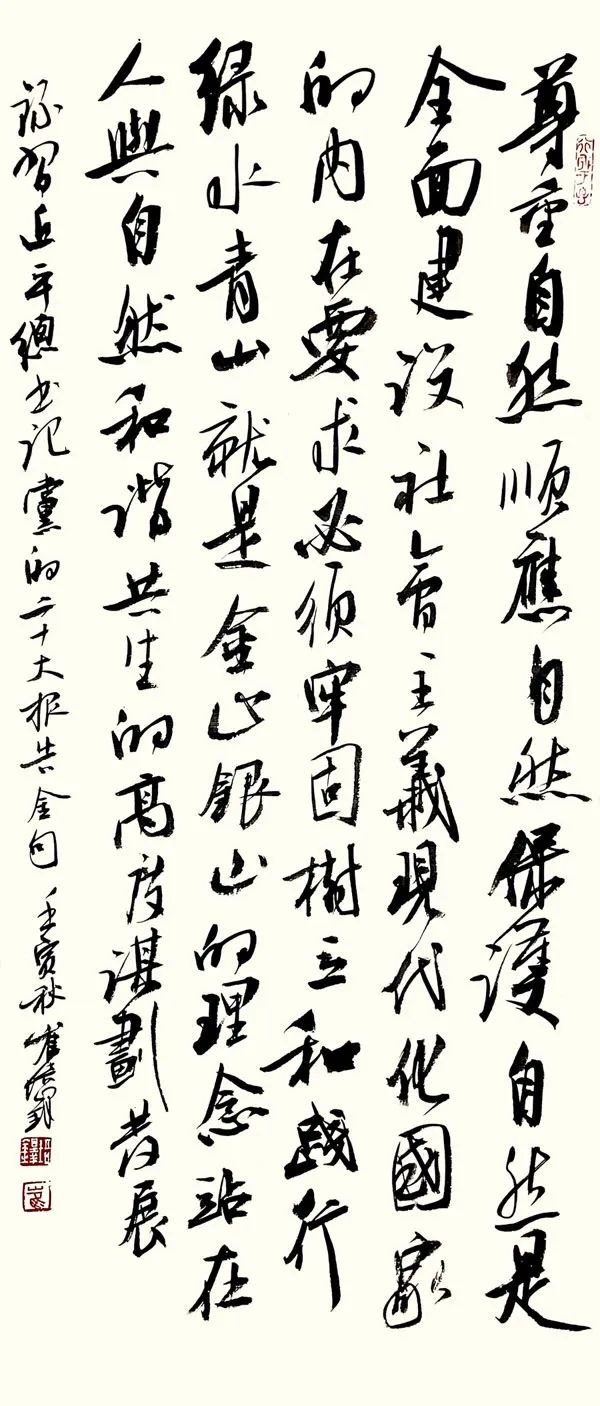 尊重自然順應自然保護自然是
全面建设社會主義現代化國家
的内在要求必须牢固樹立和踐行
绿水青山就是金山銀山的理念站在
人與自然和谐共生的高度谋劃发展
录習近平總书记黨的二十大报告金句 壬寅秋 崔